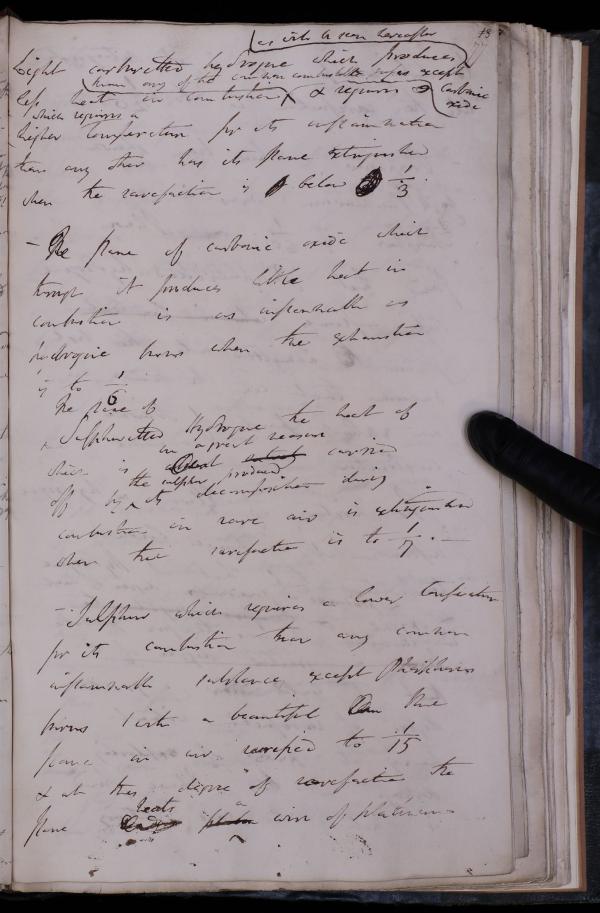 as will be seen hereafter
Light carburetted hydrogene which produces
than any of the common combustible gases except
less heat in combustion & requires a carbonic
which requires a oxide
higher temperature for its inflammation
than any other has its flame extinguished
when the rarefaction is below 1/3.
– The flame of carbonic oxide which
though it produces little heat in
combustion is as inflammable as
hydrogene burns when the exhaustion
is to 1/6
The flame of
Sulphuretted Hydrogene the heat of
in a great reason
which is carried
the sulphur produced
off by its decomposition during
combustion in rare air is extinguished
when the rarefaction is to 1/7. –
– Sulphur which requires a lower temperature
for its combustion than any common
inflammable substance except Phosphorus
burns with a beautiful blue
flame in air rarefied to 1/15
& at this degree of rarefaction the
heats a
flame wire of platinum